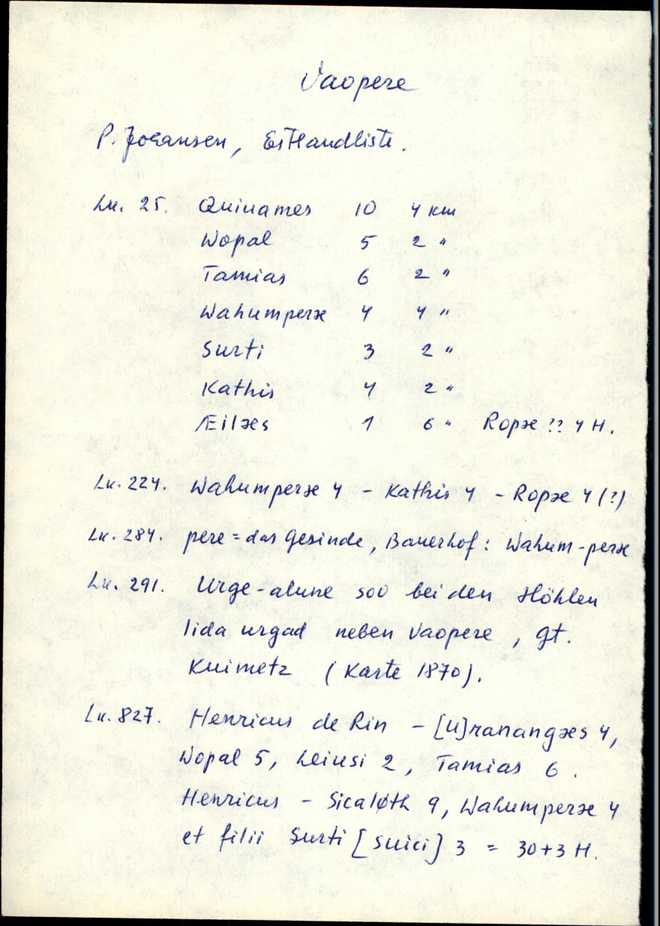 Vaopere
P. Johansen, Estlandliste.
Lk. 25. Quinames 10 4 km
Wopal 5 2 "
Tamias 6 2 "
Wahumperæ 4 4 "
Surti 3 2 "
Kathis 4 2 "
Æilæs 1 6 " Ropæ ?? 4 H.
Lk. 224. Wahumperæ 4 - Kathis 4 - Ropæ 4 (?)
Lk. 284. pere = das Gesinde, Bauerhof: Wahum-peræ
Lk. 291. Urge-alune soo bei den Höhlen
Iida urgad neben Vaopere, Gt.
Kuimetz (Karte 1870).
Lk. 827. Henricus de Rin - [U]ranangæs 4,
Wopal 5, Leiusi 2, Tamias 6.
Henricus - Sicaløth 9, Wahumperæ 4
et filii Surti [suici] 3 = 30+3 H.